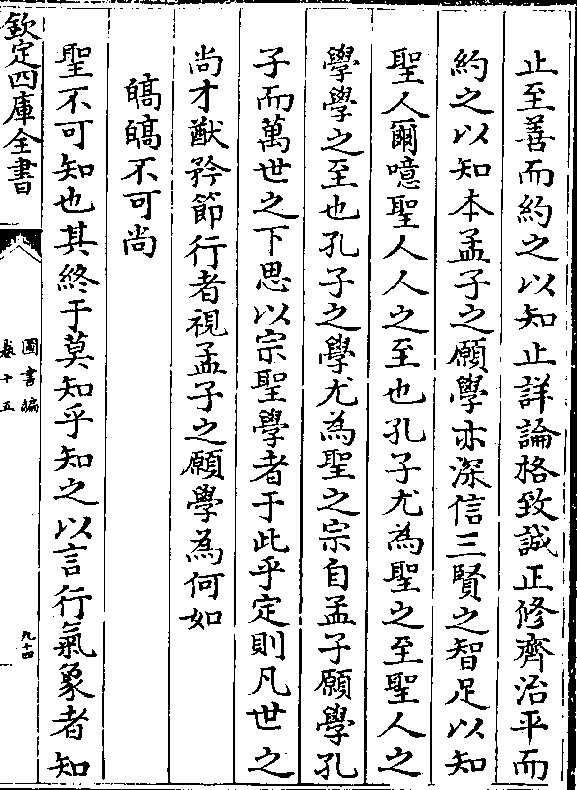 止至善而約之以知止詳論格致誠正修齊治平而
約之以知本孟子之願學亦深信三賢之智足以知
聖人爾噫聖人人之至也孔子尤為聖之至聖人之
學學之至也孔子之學尤為聖之宗自孟子願學孔
子而萬世之下思以宗聖學者于此乎定則凡世之
尚才猷矜節行者視孟子之願學為何如
皜皜不可尚
聖不可知也其終于莫知乎知之以言行氣象者知
欽定四庫全書
圖書編
卷十五
九十四